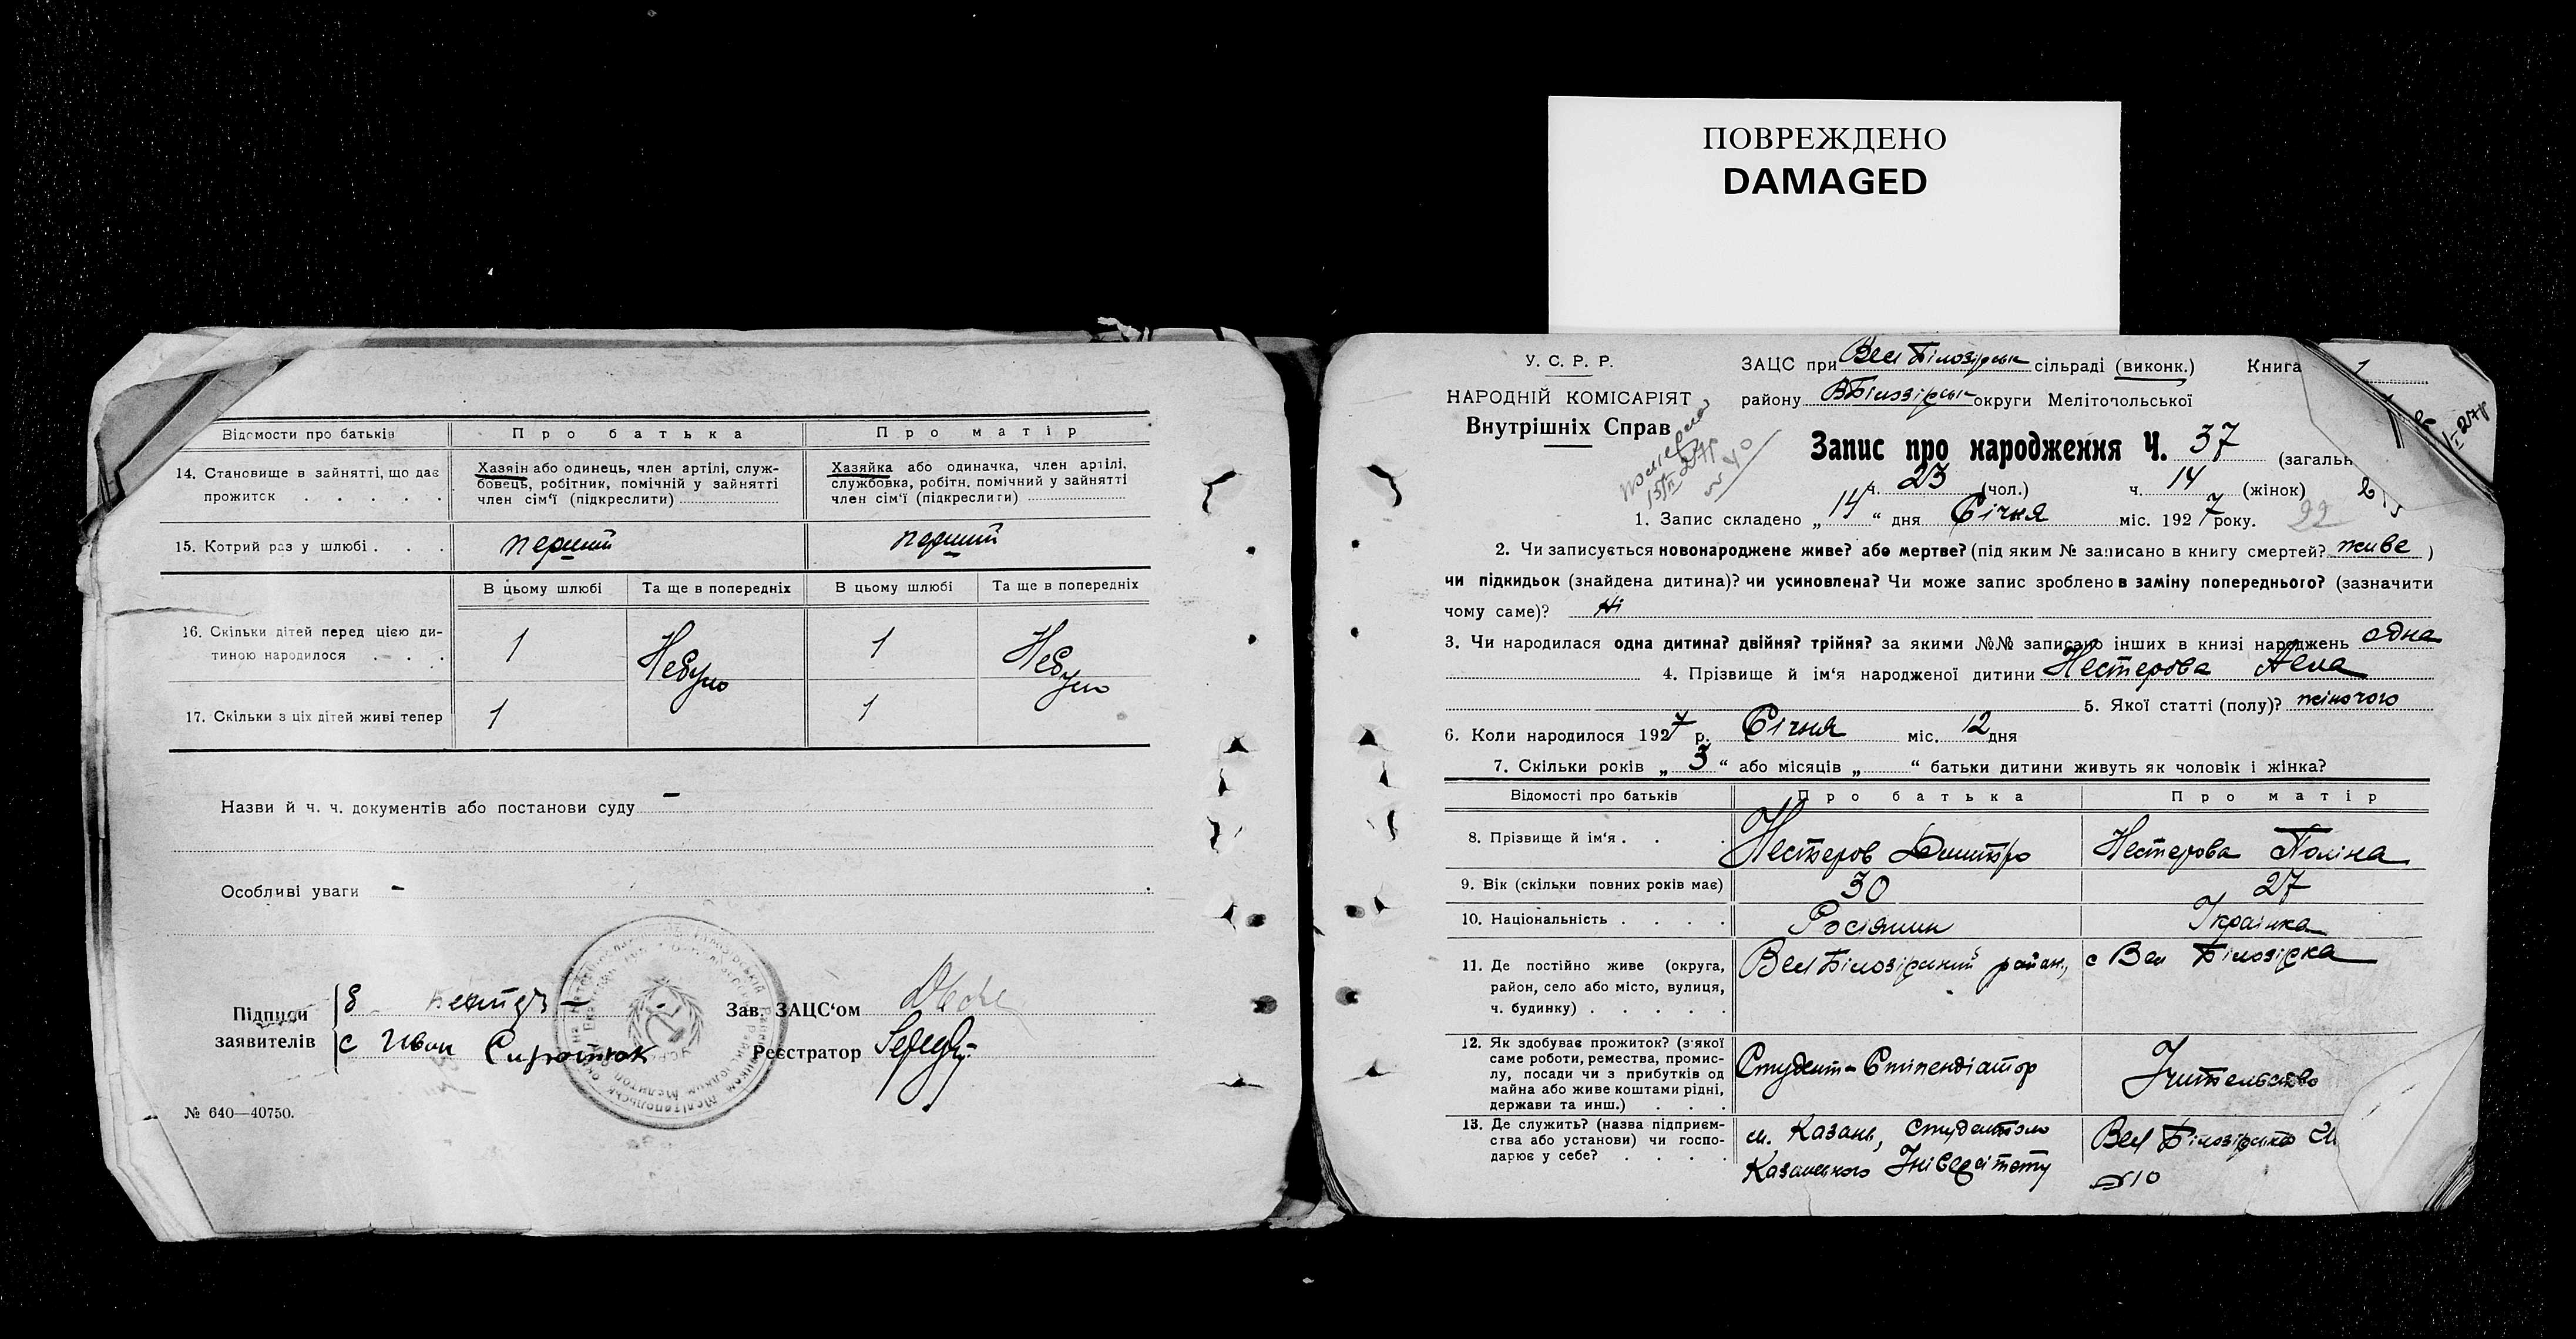 ПОВРЕЖДЕНО
DAMAGED
Відомости про батьків Про батька Про матір
14. Становище в зайнятті, що дає прожиток . . . . .
Хазяін або одинець, член артілі, служ-
бовець, робітник, помічній у зайнятті
член сім'ї (підкреслити)
Хазяйка або одиначка, член артілі,
службовка, робітн. помічний у зайнятті
член сім'ї (підкреслити)
15. Котрий раз у шлюбі . . . перший перший
В цьому шлюбі Та ще в попередніх В цьому шлюбі Та ще в попередніх
16. Скільки дітей перед цією ди-
тиною народилося . . . 1 Небуло 1 Небуло
17. Скільки з ціх дітей живі тепер 1 1
Назви й ч. ч. документів або постанови суду —
Особливі уваги -
Підписи
заявителів
с Иван Сиротюк
Зав. ЗАЦС'ом
Реєстратор
№ 640—40750.
У. С. Р. Р.
НАРОДНІЙ КОМІСАРІЯТ
Внутрішніх Справ
ЗАЦС при Вел Білозірськ сільраді (виконк.) Книга 1
району ВБілозірськ округи Мелітопольської
Запис про народження Ч. 37 (загальн
ч. 23 (чол.) ч. 14 (жінок)
22
1. Запис складено „ 14 “ дня Січня міс. 1927 року.
2. Чи записується новонароджене живе? або мертве? (під яким № записано в книгу смертей? живе )
чи підкидьок (знайдена дитина)? чи усиновлена? Чи може запис зроблено в заміну попереднього? (зазначити
чому саме)? Ні
3. Чи народилася одна дитина? двійня? трійня? за якими №№ записано інших в книзі народжень одна
4. Прізвище й ім'я народженої дитини Нестерова Нела
5. Якої статті (полу)? жіночого
6. Коли народилося 1927 р. Січня міс. 12 дня
7. Скільки років „ 3 “ або місяців „ “ батьки дитини живуть як чоловік і жінка?
Відомості про батьків Про батька Про матір
8. Прізвище й ім'я . . . Нестеров Дмитро Нестерова Поліна
9. Вік (скільки повних років має) 30 27
10. Національність . . . . Росіянин Українка
11. Де постійно живе (округа,
район, село або місто, вулиця,
ч. будинку) . . . . .
Вел Білозірський район, с Вел Білозірка
12. Як здобуває прожиток? (з якої
саме роботи, ремества, промис-
лу, посади чи з прибутків од
майна або живе коштами рідні,
держави та инш.) . . .
Студент-Стіпендіатор Учительство
13. Де служить? (назва підприєм-
ства або установи) чи госпо-
дарює у себе? . . . .
м. Казань, студентом
Казанського Університету
Вел Білозірська
№10